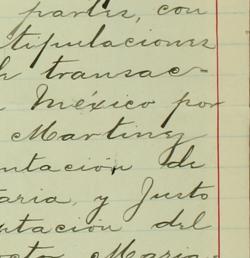 partes, con
tipulaciones
transac-
México por
Martinez
ntación de
taria, y Justo
utación del
María